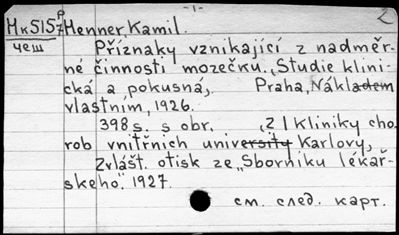 -1-
2
Мк515 р/7 Henner Kamil.
чеш
Příznaky vznikající z nadměr-
né činnosti mozečku. „Studie klini-
cká a pokusná„ Praha, Nákladem
vlastním, 1926.
398 s. s obr. (Z I kliniky cho-
rob vnitřních university Karlovy,
Zvlášt. otisk ze „Sborníku lékař-
skeho". 1927.
см. след. карт.